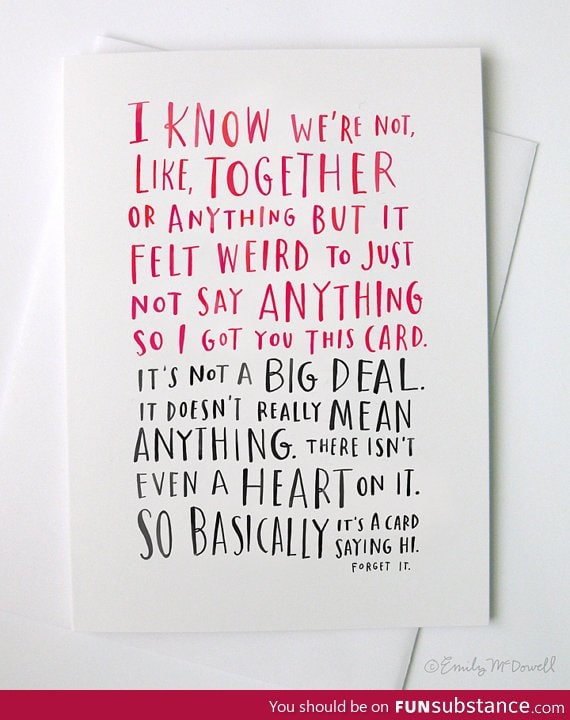 I KNOW WE'RE NOT,
LIKE, TOGETHER
OR ANYTHING BUT IT
FELT WEIRD TO JUST
NOT SAY ANYTHING
SO I GOT YOU THIS CARD.
IT'S NOT A BIG DEAL.
IT DOESN'T REALLY MEAN
ANYTHING. THERE ISN'T
EVEN A HEART ON IT.
SO BASICALLY IT'S A CARD
SAYING HI.
FORGET IT.
© Emily McDowell
You should be on FUNsubstance.com